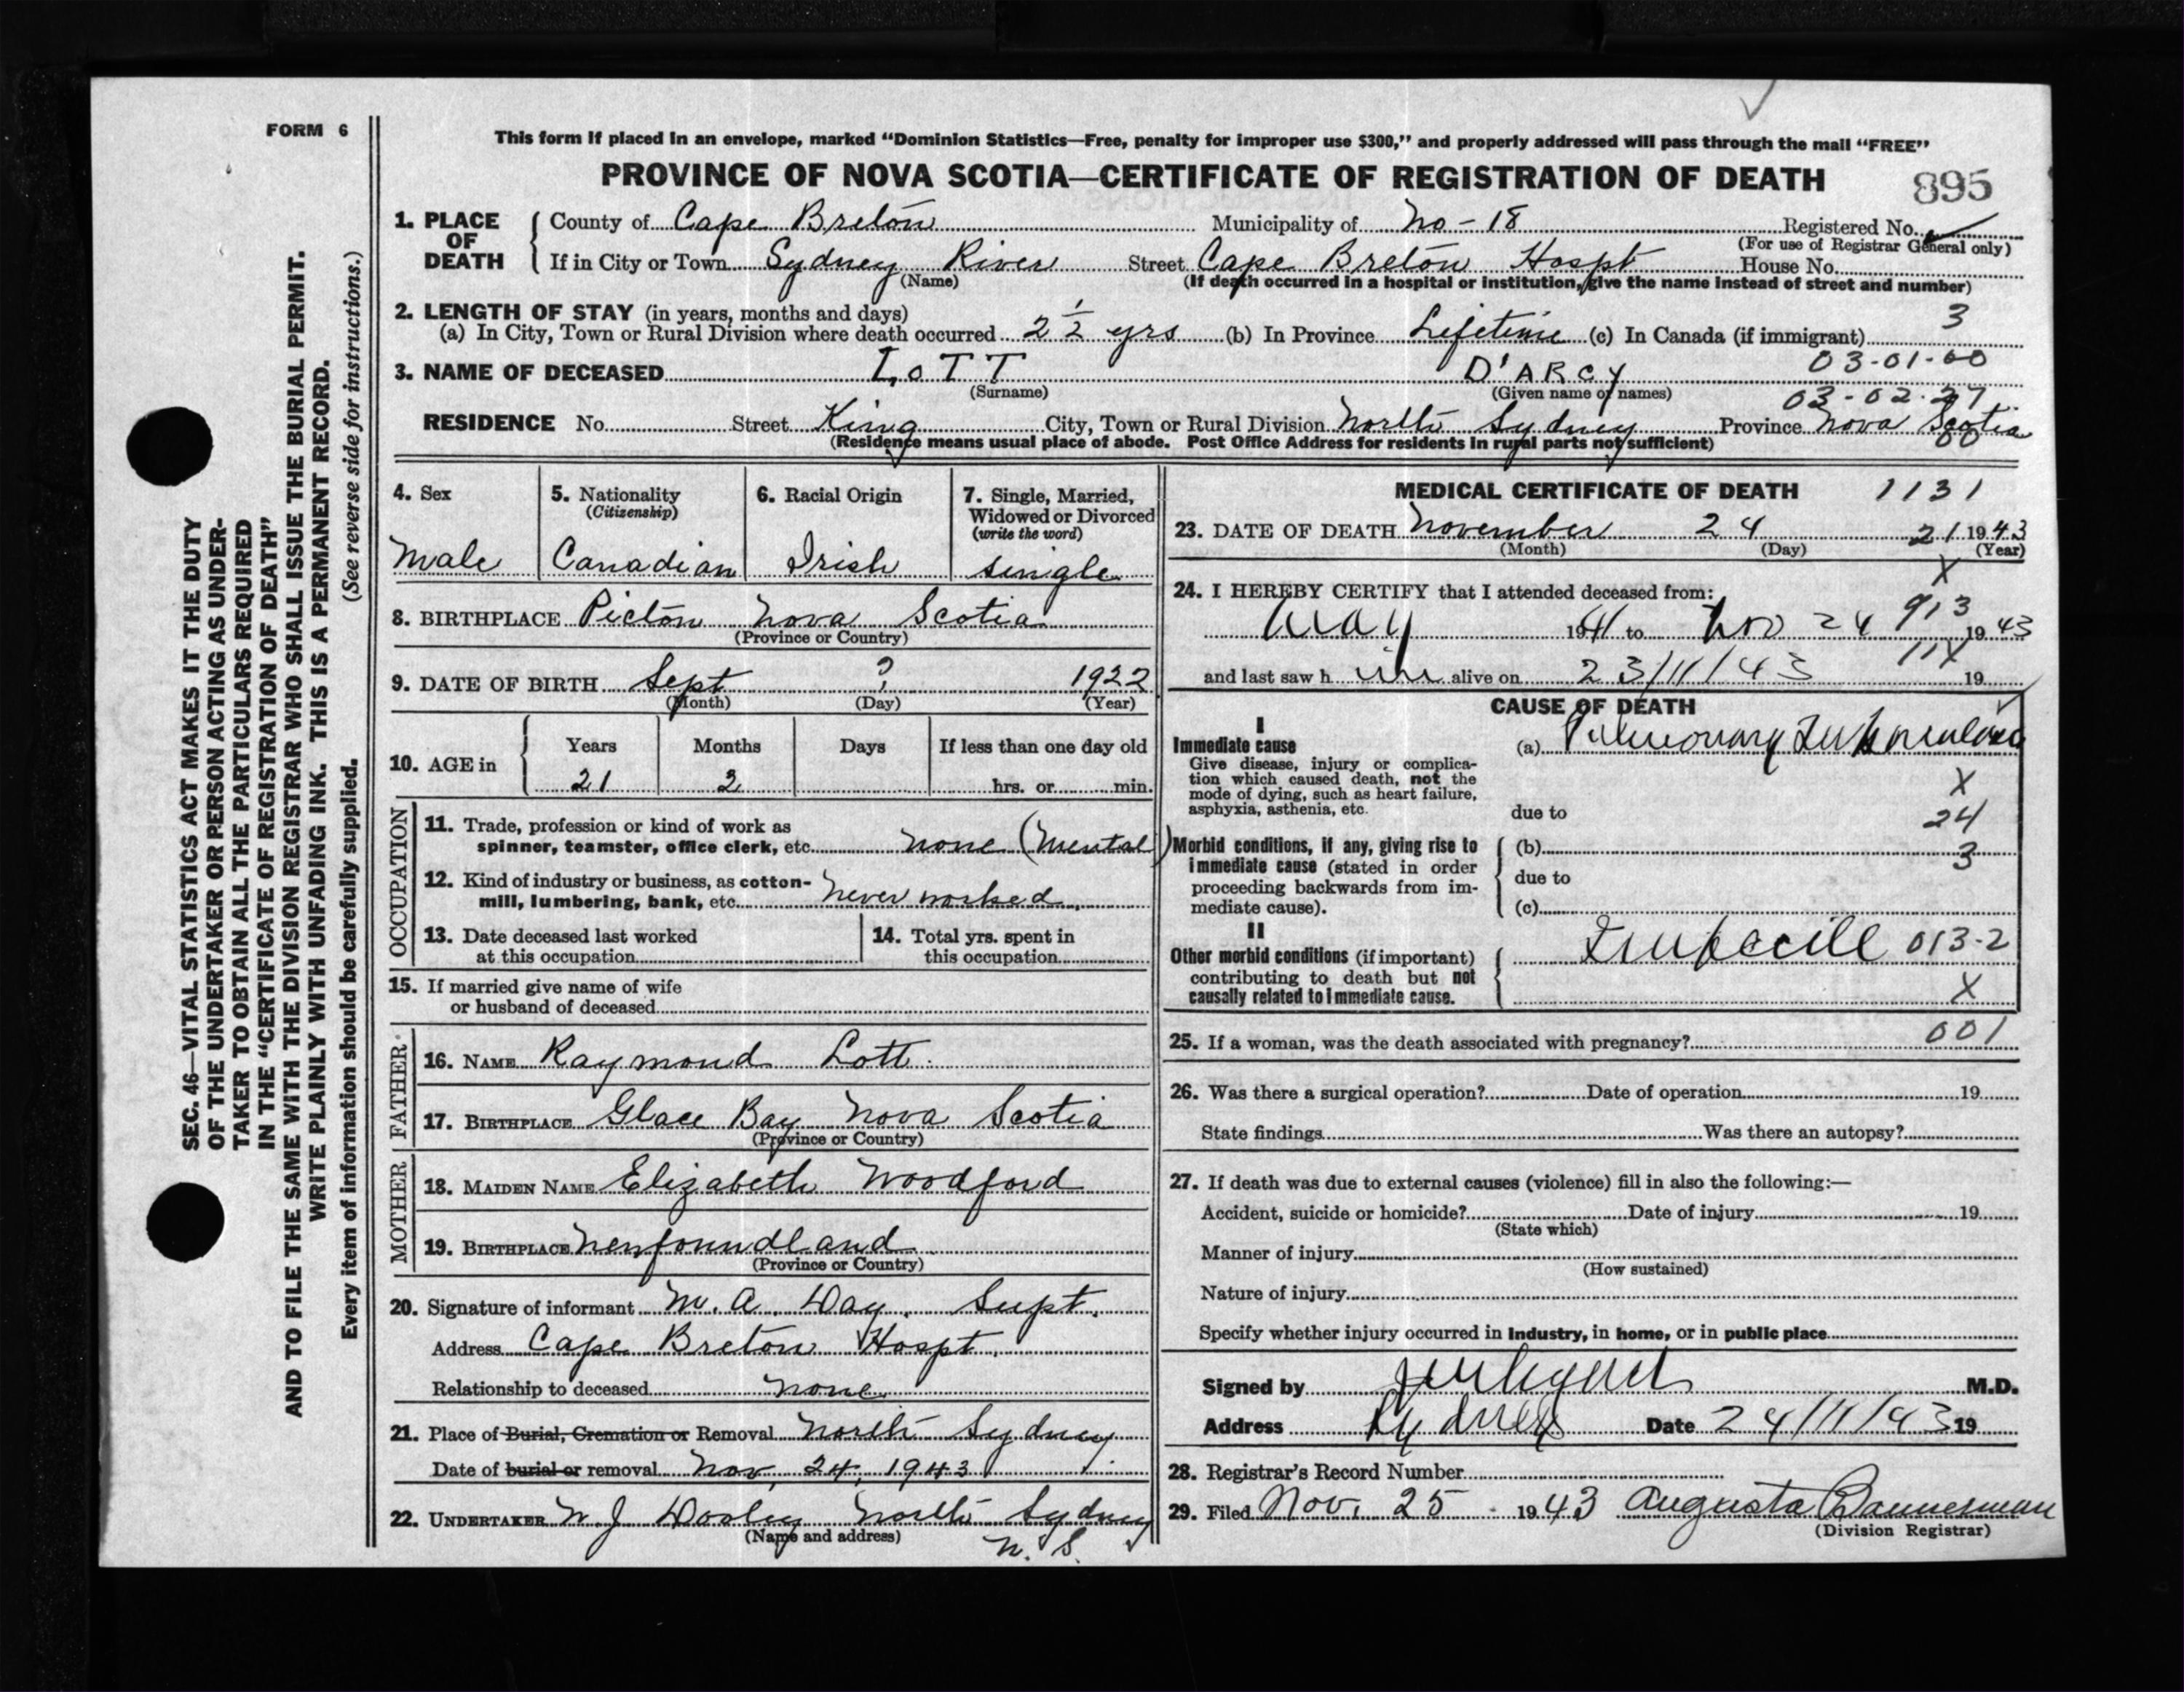 FORM 6
This form if placed in an envelope, marked “Dominion Statistics—Free, penalty for improper use $300,” and properly addressed will pass through the mail “FREE”
PROVINCE OF NOVA SCOTIA—CERTIFICATE OF REGISTRATION OF DEATH
895
1. PLACE OF DEATH
County of Cape Breton Municipality of No-18 Registered No.
(For use of Registrar General only)
If in City or Town Sydney River Street Cape Breton Hospt House No.
(Name) (If death occurred in a hospital or institution, give the name instead of street and number)
2. LENGTH OF STAY (in years, months and days)
3
(a) In City, Town or Rural Division where death occurred 2 1/2 yrs (b) In Province Lifetime (c) In Canada (if immigrant)
03-01-60
3. NAME OF DECEASED LOTT D'ARCY
(Surname) (Given name or names)
03-02-27
RESIDENCE No. Street King City, Town or Rural Division North Sydney Province Nova Scotia
00
(Residence means usual place of abode. Post Office Address for residents in rural parts not sufficient)
4. Sex
Male
5. Nationality
(Citizenship)
Canadian
6. Racial Origin
Irish
7. Single, Married,
Widowed or Divorced
(write the word)
single
8. BIRTHPLACE Pictou Nova Scotia
(Province or Country)
9. DATE OF BIRTH Sept ? 1922
(Month) (Day) (Year)
10. AGE in
Years Months Days If less than one day old
21 2 hrs. or min.
OCCUPATION
11. Trade, profession or kind of work as
spinner, teamster, office clerk, etc. none (Mental)
12. Kind of industry or business, as cotton-
mill, lumbering, bank, etc. never worked
13. Date deceased last worked
at this occupation
14. Total yrs. spent in
this occupation
15. If married give name of wife
or husband of deceased
FATHER
16. NAME Raymond Lott
17. BIRTHPLACE Glace Bay Nova Scotia
(Province or Country)
MOTHER
18. MAIDEN NAME Elizabeth Woodford
19. BIRTHPLACE Newfoundland
(Province or Country)
20. Signature of informant M. A. Day. Supt.
Address Cape Breton Hospt.
Relationship to deceased none
21. Place of Burial, Cremation or Removal North Sydney.
Date of burial or removal Nov, 24, 1943
22. UNDERTAKER W J Dooley North Sydney
(Name and address)
N. S.
MEDICAL CERTIFICATE OF DEATH 1131
23. DATE OF DEATH November 24 21 1943
(Month) (Day) (Year)
X
24. I HEREBY CERTIFY that I attended deceased from:
913
May 1941 to Nov 24 1943
11X
and last saw h im alive on 23/11/43 19
CAUSE OF DEATH
I
Immediate cause
Give disease, injury or complica-
tion which caused death, not the
mode of dying, such as heart failure,
asphyxia, asthenia, etc.
(a) Pulmonary Tuberculosis
X
due to
24
Morbid conditions, if any, giving rise to
immediate cause (stated in order
proceeding backwards from im-
mediate cause).
(b)
3
due to
(c)
II
Other morbid conditions (if important)
contributing to death but not
causally related to immediate cause.
Imbecile 013-2
X
001
25. If a woman, was the death associated with pregnancy?
26. Was there a surgical operation? Date of operation 19
State findings Was there an autopsy?
27. If death was due to external causes (violence) fill in also the following:—
Accident, suicide or homicide? Date of injury 19
(State which)
Manner of injury
(How sustained)
Nature of injury
Specify whether injury occurred in industry, in home, or in public place
Signed by M.D.
Address Sydney Date 24/11/43 19
28. Registrar's Record Number
29. Filed Nov. 25 - 1943 Augusta Bannerman
(Division Registrar)
SEC. 46—VITAL STATISTICS ACT MAKES IT THE DUTY
OF THE UNDERTAKER OR PERSON ACTING AS UNDER-
TAKER TO OBTAIN ALL THE PARTICULARS REQUIRED
IN THE “CERTIFICATE OF REGISTRATION OF DEATH”
AND TO FILE THE SAME WITH THE DIVISION REGISTRAR WHO SHALL ISSUE THE BURIAL PERMIT.
WRITE PLAINLY WITH UNFADING INK. THIS IS A PERMANENT RECORD.
Every item of information should be carefully supplied. (See reverse side for instructions.)